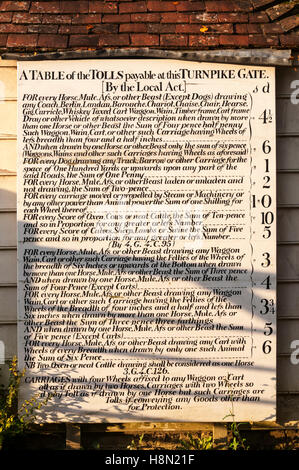 A TABLE of the TOLLS payable at this TURNPIKE GATE.
[By the Local Act.]
s d
FOR every Horse, Mule, Afs, or other Beast (Except Dogs) drawing
any Coach, Berlin, Landau, Barouche, Chariot, Chaise, Chair, Hearse,
Gig, Curricle, Whiskey, Taxed Cart, Waggon, Wain, Timber frame, Cart frame
Dray or other Vehicle of whatsoever description when drawn by more
than one Horse or other Beast the Sum of four pence half penny 4½
Such Waggon, Wain, Cart, or other such Carriage having Wheels of
lefs breadth than four and a half inches
AND when drawn by one Horse or other Beast only the sum of sixpence 6
Waggons, Wains and other such Carriages having Wheels as aforesaid
FOR every Dog drawing any Truck, Barrow or other Carriage for the
space of One Hundred Yards or upwards upon any part of the
said Roads, the Sum of One Penny 1
FOR every Horse, Mule, Afs, or other Beast laden or unladen and
not drawing, the Sum of Two-pence 2
FOR every carriage moved or propelled by Steam or Machinery or
by any other power than Animal power the Sum of One Shilling for
each Wheel thereof 1 0
FOR every Score of Oxen, Cows or neat Cattle, the Sum of Ten-pence
and so in Proportion for any greater or lefs Number 10
FOR every Score of Calves, Hogs, Sheep or Lambs, the Sum of Five
pence and so in proportion for any greater or lefs number 5
(By 4, G. 4, C.95)
FOR every Horse, Mule, Afs or other Beast drawing any Waggon
Wain, Cart or other such Carriage having the Fellies of the Wheels of
the breadth of Six Inches or upwards at the Bottom when drawn
by more than one Horse, Mule, Afs or other Beast the Sum of Three pence 3
AND when drawn by one Horse, Mule, Afs or other Beast the Sum of
Four pence (Except Carts) 4
FOR every Horse, Mule, Afs or other Beast drawing any Waggon
Wain, Cart or other such Carriage having the Fellies of the
Wheels of the Breadth of four inches and a half and lefs than
Six inches when drawn by more than one Horse, Mule, Afs or
other Beast the Sum of Three pence three farthings 3¾
AND when drawn by one Horse, Mule, Afs or other Beast the Sum
of Five pence (Except Carts) 5
FOR every Horse, Mule, Afs or other Beast drawing any Cart with
Wheels of every Breadth when drawn by only one such Animal
the Sum of Six Pence 6
NB Two Oxen or neat Cattle drawing shall be considered as one Horse
3, G. 4, C.126.
CARRIAGES with four Wheels affixed to any Waggon or Cart
all as if drawn by two Horses, Carriages with two Wheels so
affixed pay Toll as if drawn by one Horse but such Carriages are
exempt from Tolls if conveying any Goods other than
for Protection.
alamy
H8N21F